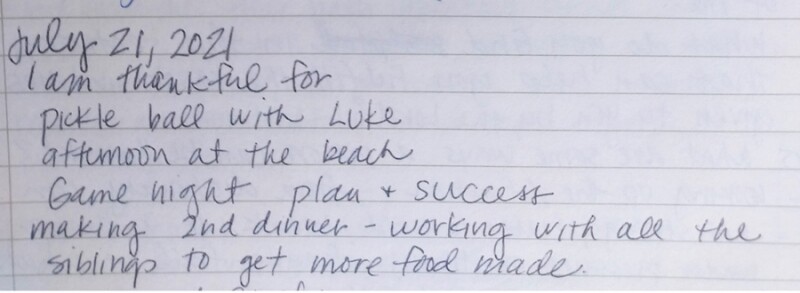 July 21, 2021
I am thankful for
pickle ball with Luke
afternoon at the beach
Game night plan + success
making 2nd dinner - working with all the
siblings to get more food made.